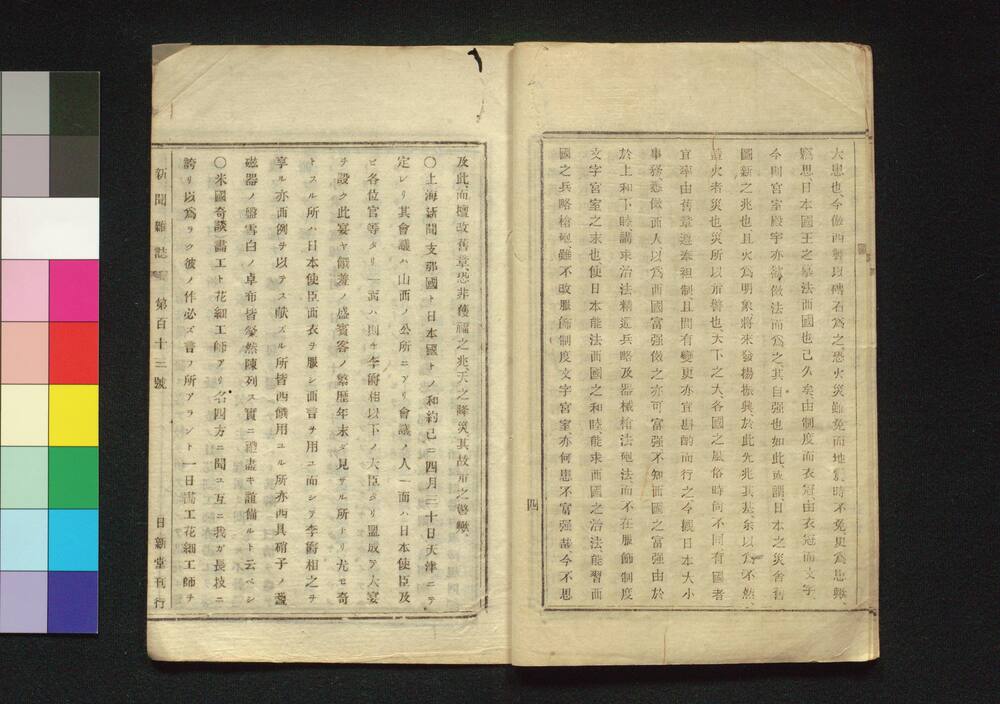 大患也、今倣西製以磚石爲之、恐火災雖免而地震時不免更爲患歟、
窃思日本國王之慕法西國也已久矣、由制度而衣冠、由衣冠而文字、
今則宮室殿宇亦欲倣法而爲之其自强也如此或謂、日本之災舍舊
圖新之兆也且火爲明象將來發揚振興、於此先兆其基余以爲不然、
蓋火者災也災所以示警也、天下之大、各國之風俗時尚不同有國者
宜率由舊章遵奉祖制且間有變更亦宜斟酌而行之今觀日本大小
事務悉倣西人以爲西國富强倣之亦可富强不知西國之富强由於
於上和下睦、講求治法精選兵略及器械槍法砲法、而不在服飾制度
文字宮室之末也使日本能法西國之和睦能求西國之治法能習西
國之兵略槍砲、雖不改服飾制度文字宮室亦何患不富强哉今不思
四
及此、而擅改舊章、恐非獲福之兆、天之降災其故示之警歟、
〇上海新聞支那國ト日本國トノ和約已ニ四月三十日天津ニテ
定レリ其會議ハ山西ノ公所ニアリ會議ノ人一面ハ日本使臣及
ヒ各位官等タリ一面ハ則チ李爵相以下ノ大臣タリ盟成テ大宴
ヲ設ク此宴ヤ饌羞ノ盛賓客ノ繁歴年末ダ見サル所トリ尤モ奇
トスル所ハ日本使臣西衣ヲ服シ西音ヲ用ユ而シテ李爵相之ヲ
享ル亦西例ヲ以テス献ズル所皆西饌用ユル所亦西具硝子ノ盞
磁器ノ盤雪白ノ卓布皆燦然陳列ス實ニ禮盡キ誼備ルト云ベシ
〇米國奇談畵工ト花細工師アリ名四方ニ聞ユ互ニ我ガ長技ニ
誇リ以爲ラク彼ノ作必ズ吾ノ所アラント一日畵工花細工師ヲ
新聞雜誌 第百十三號 日新堂刊行